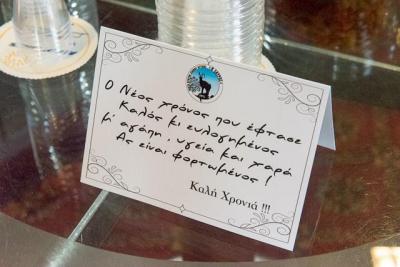 Ο Νέος χρόνος που έφτασε
Καλός κι ευλογημένος
μ' αγάπη, υγεία και χαρά
Ας είναι φορτωμένος!
Καλή Χρονιά !!!